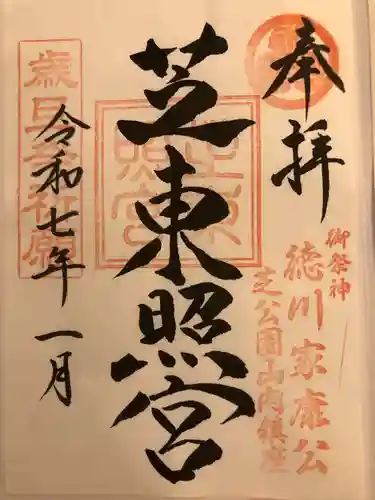 奉拝
御祭神
徳川家康公
芝公園山内鎮座
芝東照宮
令和七年一月
歳旦奉祝祈願